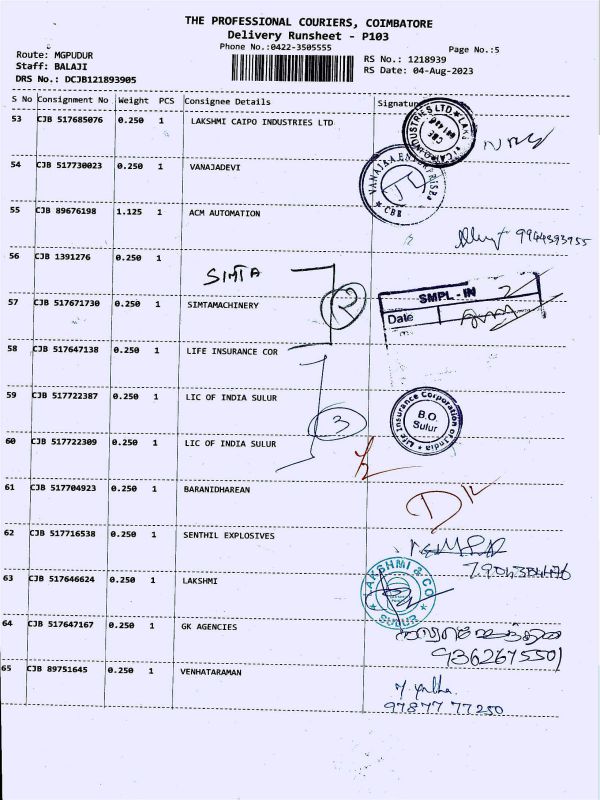 THE PROFESSIONAL COURIERS, COIMBATORE
Delivery Runsheet - P103
Phone No.:0422-3505555
Page No.:5
Route: MGPUDUR
Staff: BALAJI
DRS No.: DCJB121893905
RS No.: 1218939
RS Date: 04-Aug-2023
S No Consignment No Weight PCS Consignee Details Signature
53 CJB 517685076 0.250 1 LAKSHMI CAIPO INDUSTRIES LTD
54 CJB 517730023 0.250 1 VANAJADEVI
CBE
55 CJB 89676198 1.125 1 ACM AUTOMATION
9944393955
56 CJB 1391276 0.250 1
SIMTA
57 CJB 517671730 0.250 1 SIMTAMACHINERY
2
SMPL - IN
Date
58 CJB 517647138 0.250 1 LIFE INSURANCE COR
59 CJB 517722387 0.250 1 LIC OF INDIA SULUR
3
Life Insurance Corporation of India
B.O.
Sulur
60 CJB 517722309 0.250 1 LIC OF INDIA SULUR
61 CJB 517704923 0.250 1 BARANIDHAREAN
62 CJB 517716538 0.250 1 SENTHIL EXPLOSIVES
63 CJB 517646624 0.250 1 LAKSHMI
LAKSHMI & CO
SULUR
64 CJB 517647167 0.250 1 GK AGENCIES
9362675501
65 CJB 89751645 0.250 1 VENHATARAMAN
97877 77250